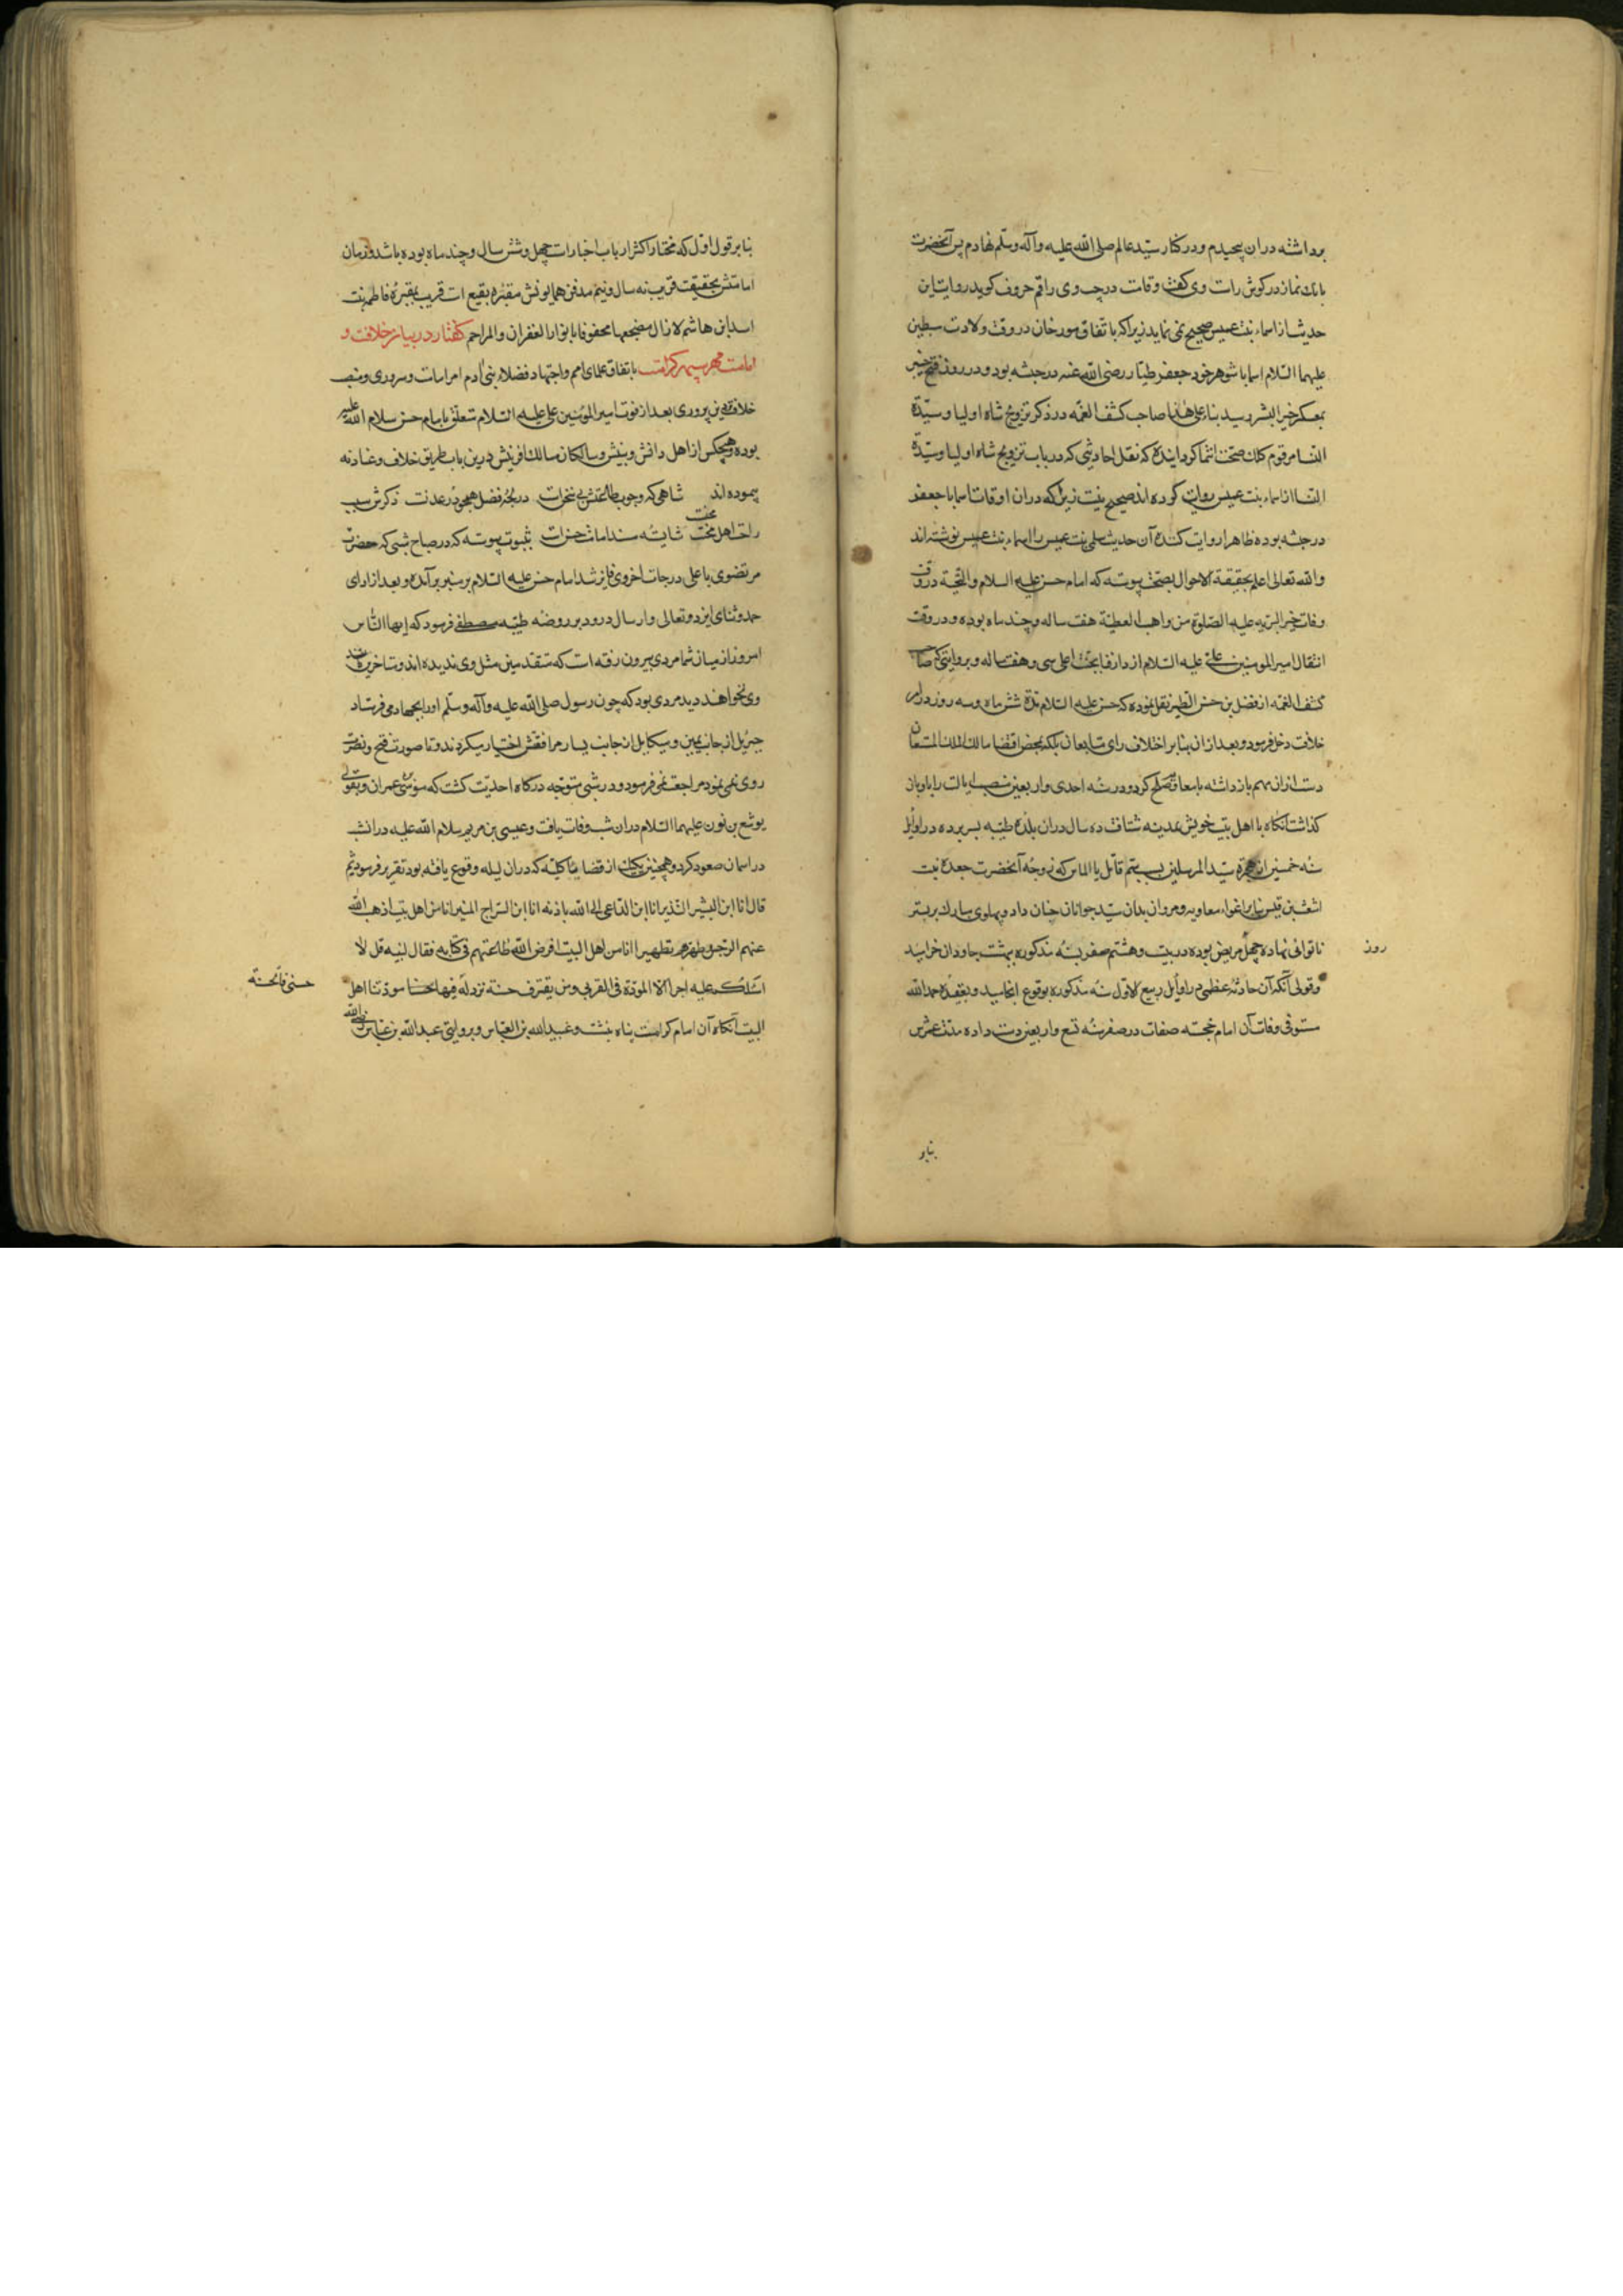 برداشته دران پیچیدم و درکنار سید عالم صلی الله علیه و آله وسلم نهادم پس آنحضرت
بانک نماز در کوش راست وی کفت و قامت در چپ وی راقم حروف کوید روایت این
حدیث از اسماء بنت عمیس صحیح نمی نماید زیرا که باتفاق مورخان در وقت ولادت سبطین
علیهما السلام اسما با شوهر خود جعفر طیار رضی الله عنه در حبشه بود و در روز فتح خیبر
بمعسکر خیر البشر رسید بناء علی هذا صاحب کشف الغمه در ذکر تزویج شاه اولیا و سیدة
النسا مرقوم کلک صحت انتما کردانیده که نقل احادیثی که در باب تزویج شاه اولیا و سیدة
النسا از اسماء بنت عمیس روایت کرده اند صحیح نیست زیرا که دران اوقات اسما با جعفر
در حبشه بوده ظاهرا روایت کننده آن حدیث سلمی بنت عمیس را اسماء بنت عمیس نوشته اند
والله تعالی اعلم بحقیقة الاحوال بصحت پیوسته که امام حسن علیه السلام والتحیة در وقت
وفات خیر البریه علیه الصلوة من واهب العطیة هفت ساله و چند ماه بوده و در وقت
انتقال امیر المومنین علی علیه السلام از دار فنا بجنت اعلی سی و هفت ساله و بروایتی که صاحب
کشف الغمه از فضل بن حسن الطبرسی نقل نموده که حسن علیه السلام مدة شش ماه وسه روز در امر
خلافت دخل فرمود و بعد ازان بنابر اختلاف رای متابعان بلکه بمحض اقتضا مالک الملک المستعان
دست ازان مهم باز داشته با معاویه صلح کرد و در سنه احدی و اربعین منصب ایالت را باو باز
کذاشت آنکاه با اهل بیت خویش بمدینه شتافت ده سال دران بلده طیبه بسر برده در اوایل
سنه خمسین از هجرة سید المرسلین بسبب سم قاتل یا الماس که زوجه آنحضرت جعده بنت
اشعث بن قیس بنابر اغواء معاویه و مروان بدان سید جوانان جنان داد و پهلوی مبارک بر بستر
ناتوانی نهاده چهل مریض بوده در بیست و هشتم صفر سنه مذکوره ببهشت جاودان خرامید
روز
و قولی آنکه آن حادثه عظمی در اوایل ربیع الاول سنه مذکوره بوقوع انجامید و بعقیده حمد الله
مستوفی وفات آن امام خجسته صفات در صفر سنه تسع و اربعین دست داده مدت عمرش
بنابر
بنابر قول اول که مختار اکثر ارباب اخبار است چهل و شش سال و چند ماه بوده باشد و زمان
امامتش بحقیقت قریب نه سال و نیم مدفن همایونش مقبره بقیع است قریب بمقبرۀ فاطمه بنت
اسد ابن هاشم لازال مضجعها محفوفا بانوار الغفران والمراحم کفتار در بیان خلافت و
امامت مهر سپهر کرامت باتفاق علمای امم و اجتهاد فضلاء بنی آدم امر امامت و سروری و منصب
خلافت و دین پروری بعد از فوت امیر المؤمنین علی علیه السلام متعلق بامام حسن سلام الله علیه
بوده و هیچکس از اهل دانش و بینش و سالکان مسالک آفرینش درین باب طریق خلاف و عناد نه
پیموده اند شاهی که وجوب طاعتش بی سخن است در بحر فضل همچو در عدنست ذکرش سبب
راحت اهل محنت شایسته مسند امامت حسن است بثبوت پیوسته که در صباح شبی که حضرت
محنت
مرتضوی باعلی درجات اخروی فایز شد امام حسن علیه السلام بر منبر برآمده و بعد از ادای
حمد و ثنای ایزد وتعالی و ارسال درود بر روضه طیبه مصطفی فرمود که ایها الناس
امروز از میان شما مردی بیرون رفته است که متقدمین مثل وی ندیده اند و متاخرین مانند
وی نخواهند دید مردی بود که چون رسول صلی الله علیه و آله وسلم او را بجهاد می فرستاد
جبرئیل از جانب یمین و میکایل از جانب یسار مرافقتش اختیار میکردند و تا صورت فتح و نصرت
روی نمی نمود مراجعت نمی فرمود و در شبی متوجه درکاه احدیت کشت که موسی عمران و بقولی
یوشع بن نون علیهما السلام دران شب وفات یافت و عیسی بن مریم سلام الله علیه در انشب
در اسمان صعود کرد و همچنین یکیک از قضایاء کلیه که دران لیله وقوع یافته بود تقریر فرمود ثم
قال انا ابن البشیر النذیر انا ابن الداعی الی الله باذنه انا ابن السراج المنیر انا من اهل بیت اذهب الله
عنهم الرجس و طهرهم تطهیرا انا من اهل البیت افرض الله طاعتهم فی کتابه فقال لنبیه قل لا
اسئلکم علیه اجرا الا المودة فی القربی ومن یقترف حسنة نزد له فیها حسنا مودتنا اهل
حسنی فالحسنة
البیت آنکاه آن امام کرامت پناه بنشست و عبید الله بن العباس و بروایتی عبد الله بن عباس رضی الله